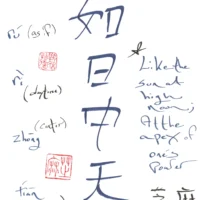 rú (as if)
rì
(daytime)
zhōng
(centr)
tiān
如
日
中
天
Like the
sun at
high
noon;
At the
apex of
one's
power